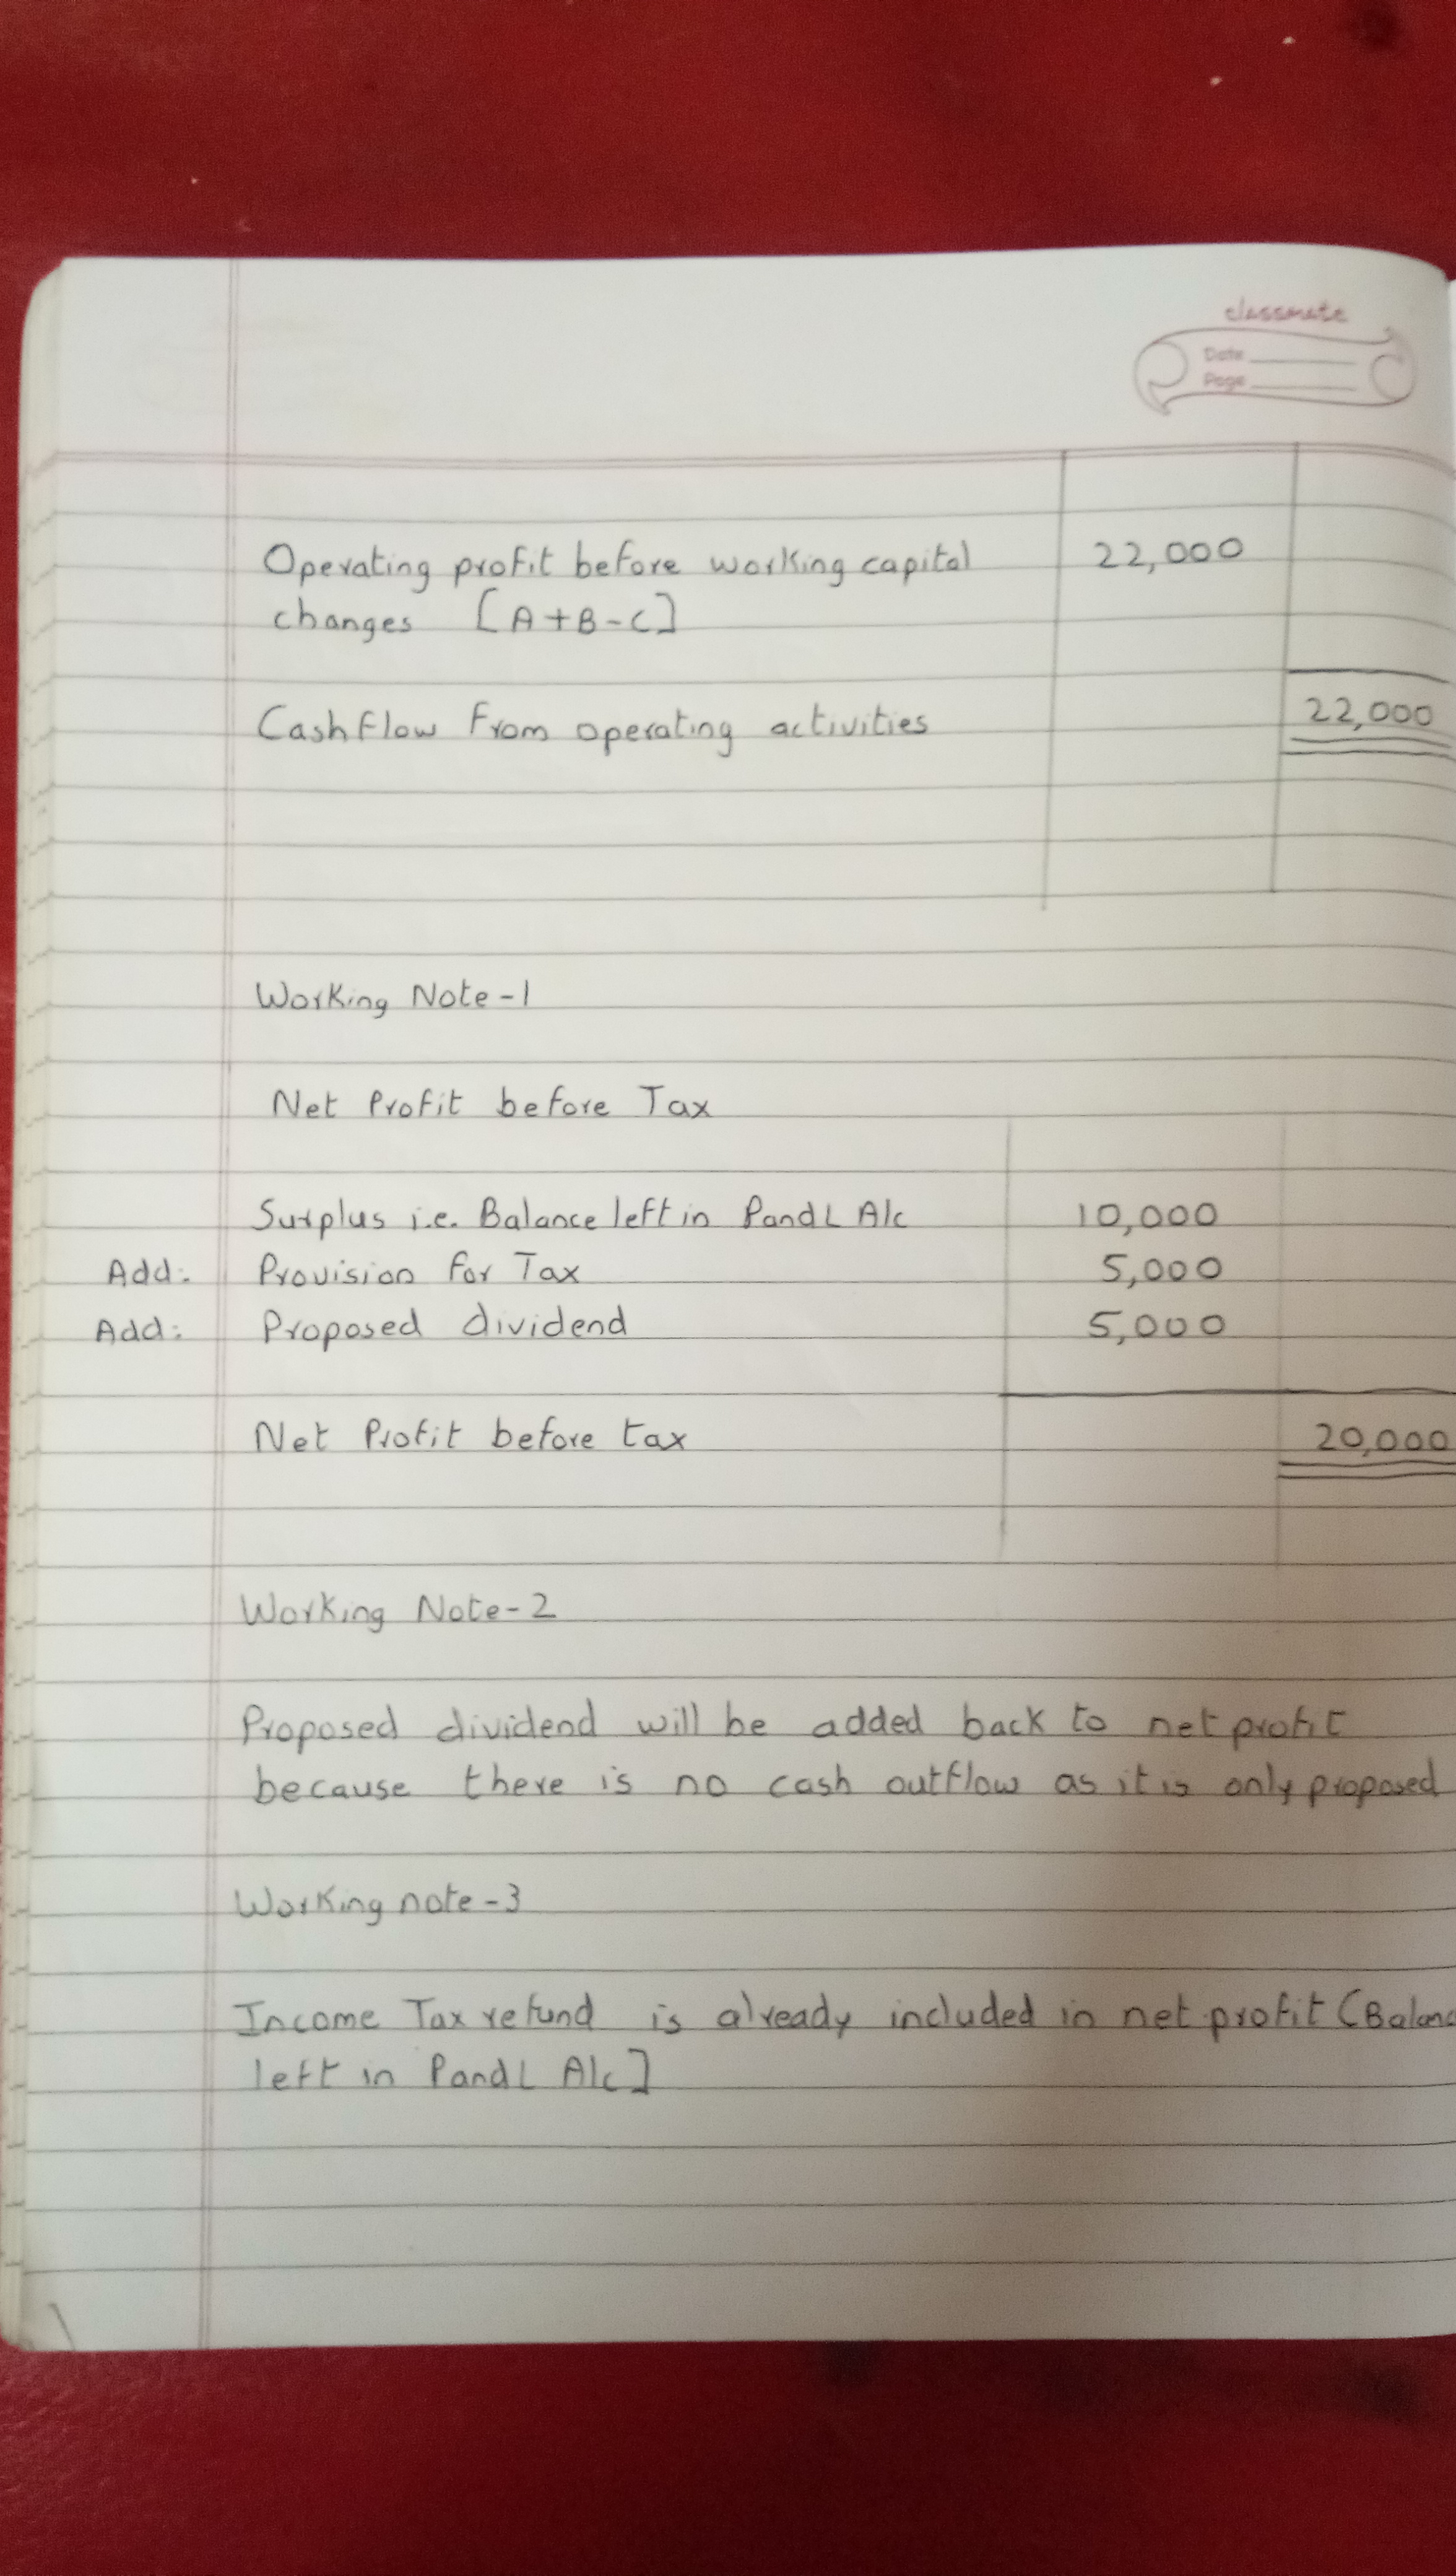 classmate
Date
Page
Operating profit before working capital 22,000
changes [A+B-C]
Cash flow from operating activities 22,000
Working Note-1
Net Profit before Tax
Surplus i.e. Balance left in P and L A/c 10,000
Add: Provision for Tax 5,000
Add: Proposed dividend 5,000
Net Profit before tax 20,000
Working Note-2
Proposed dividend will be added back to net profit
because there is no cash outflow as it is only proposed
Working note-3
Income Tax refund is already included in net profit
left in P and L A/c]